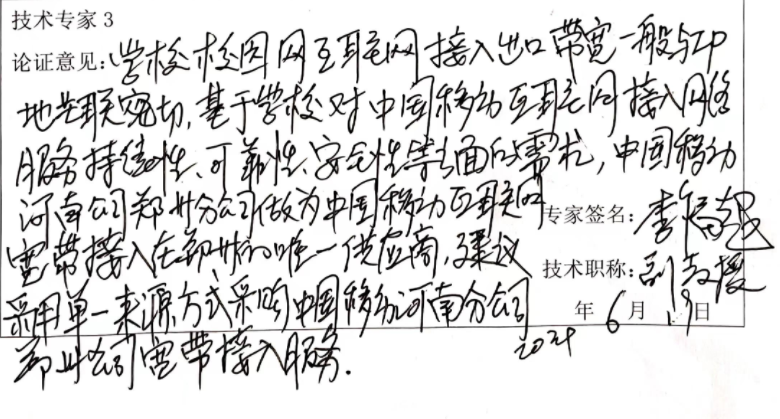 技术专家 3
论证意见:学校校园网互联网接入出口带宽一般与IP
地址联密切,基于学校对中国移动互联网接入网络
服务持续性、可靠性、安全性等方面的需求,中国移动
河南公司郑州分公司做为中国移动互联网
专家签名:李
宽带接入在郑州的唯一供应商,建议
技术职称:副教授
采用单一来源方式采购中国移动河南分公司
年 6 月 19 日
2024
郑州公司宽带接入服务.